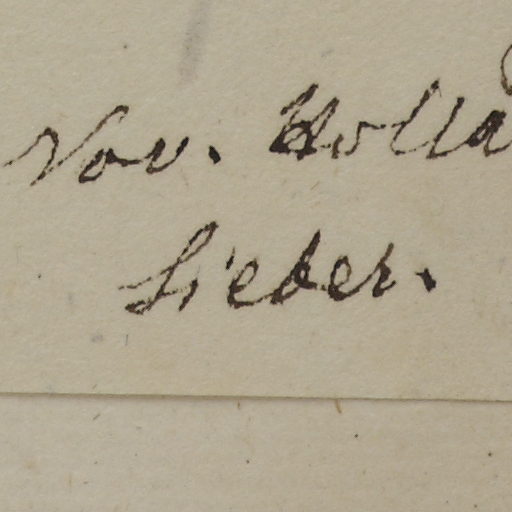 Nov. Holla
Sieber.